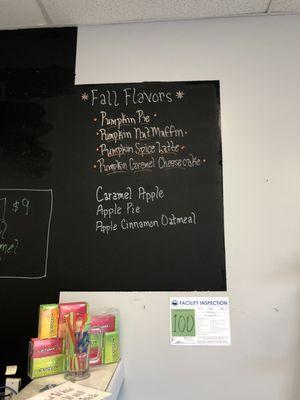 * Fall Flavors *
• Pumpkin Pie •
• Pumpkin Nut Muffin •
• Pumpkin Spice Latte •
• Pumpkin Caramel Cheesecake •
Caramel Apple
Apple Pie
Apple Cinnamon Oatmeal
$9
FACILITY INSPECTION
100